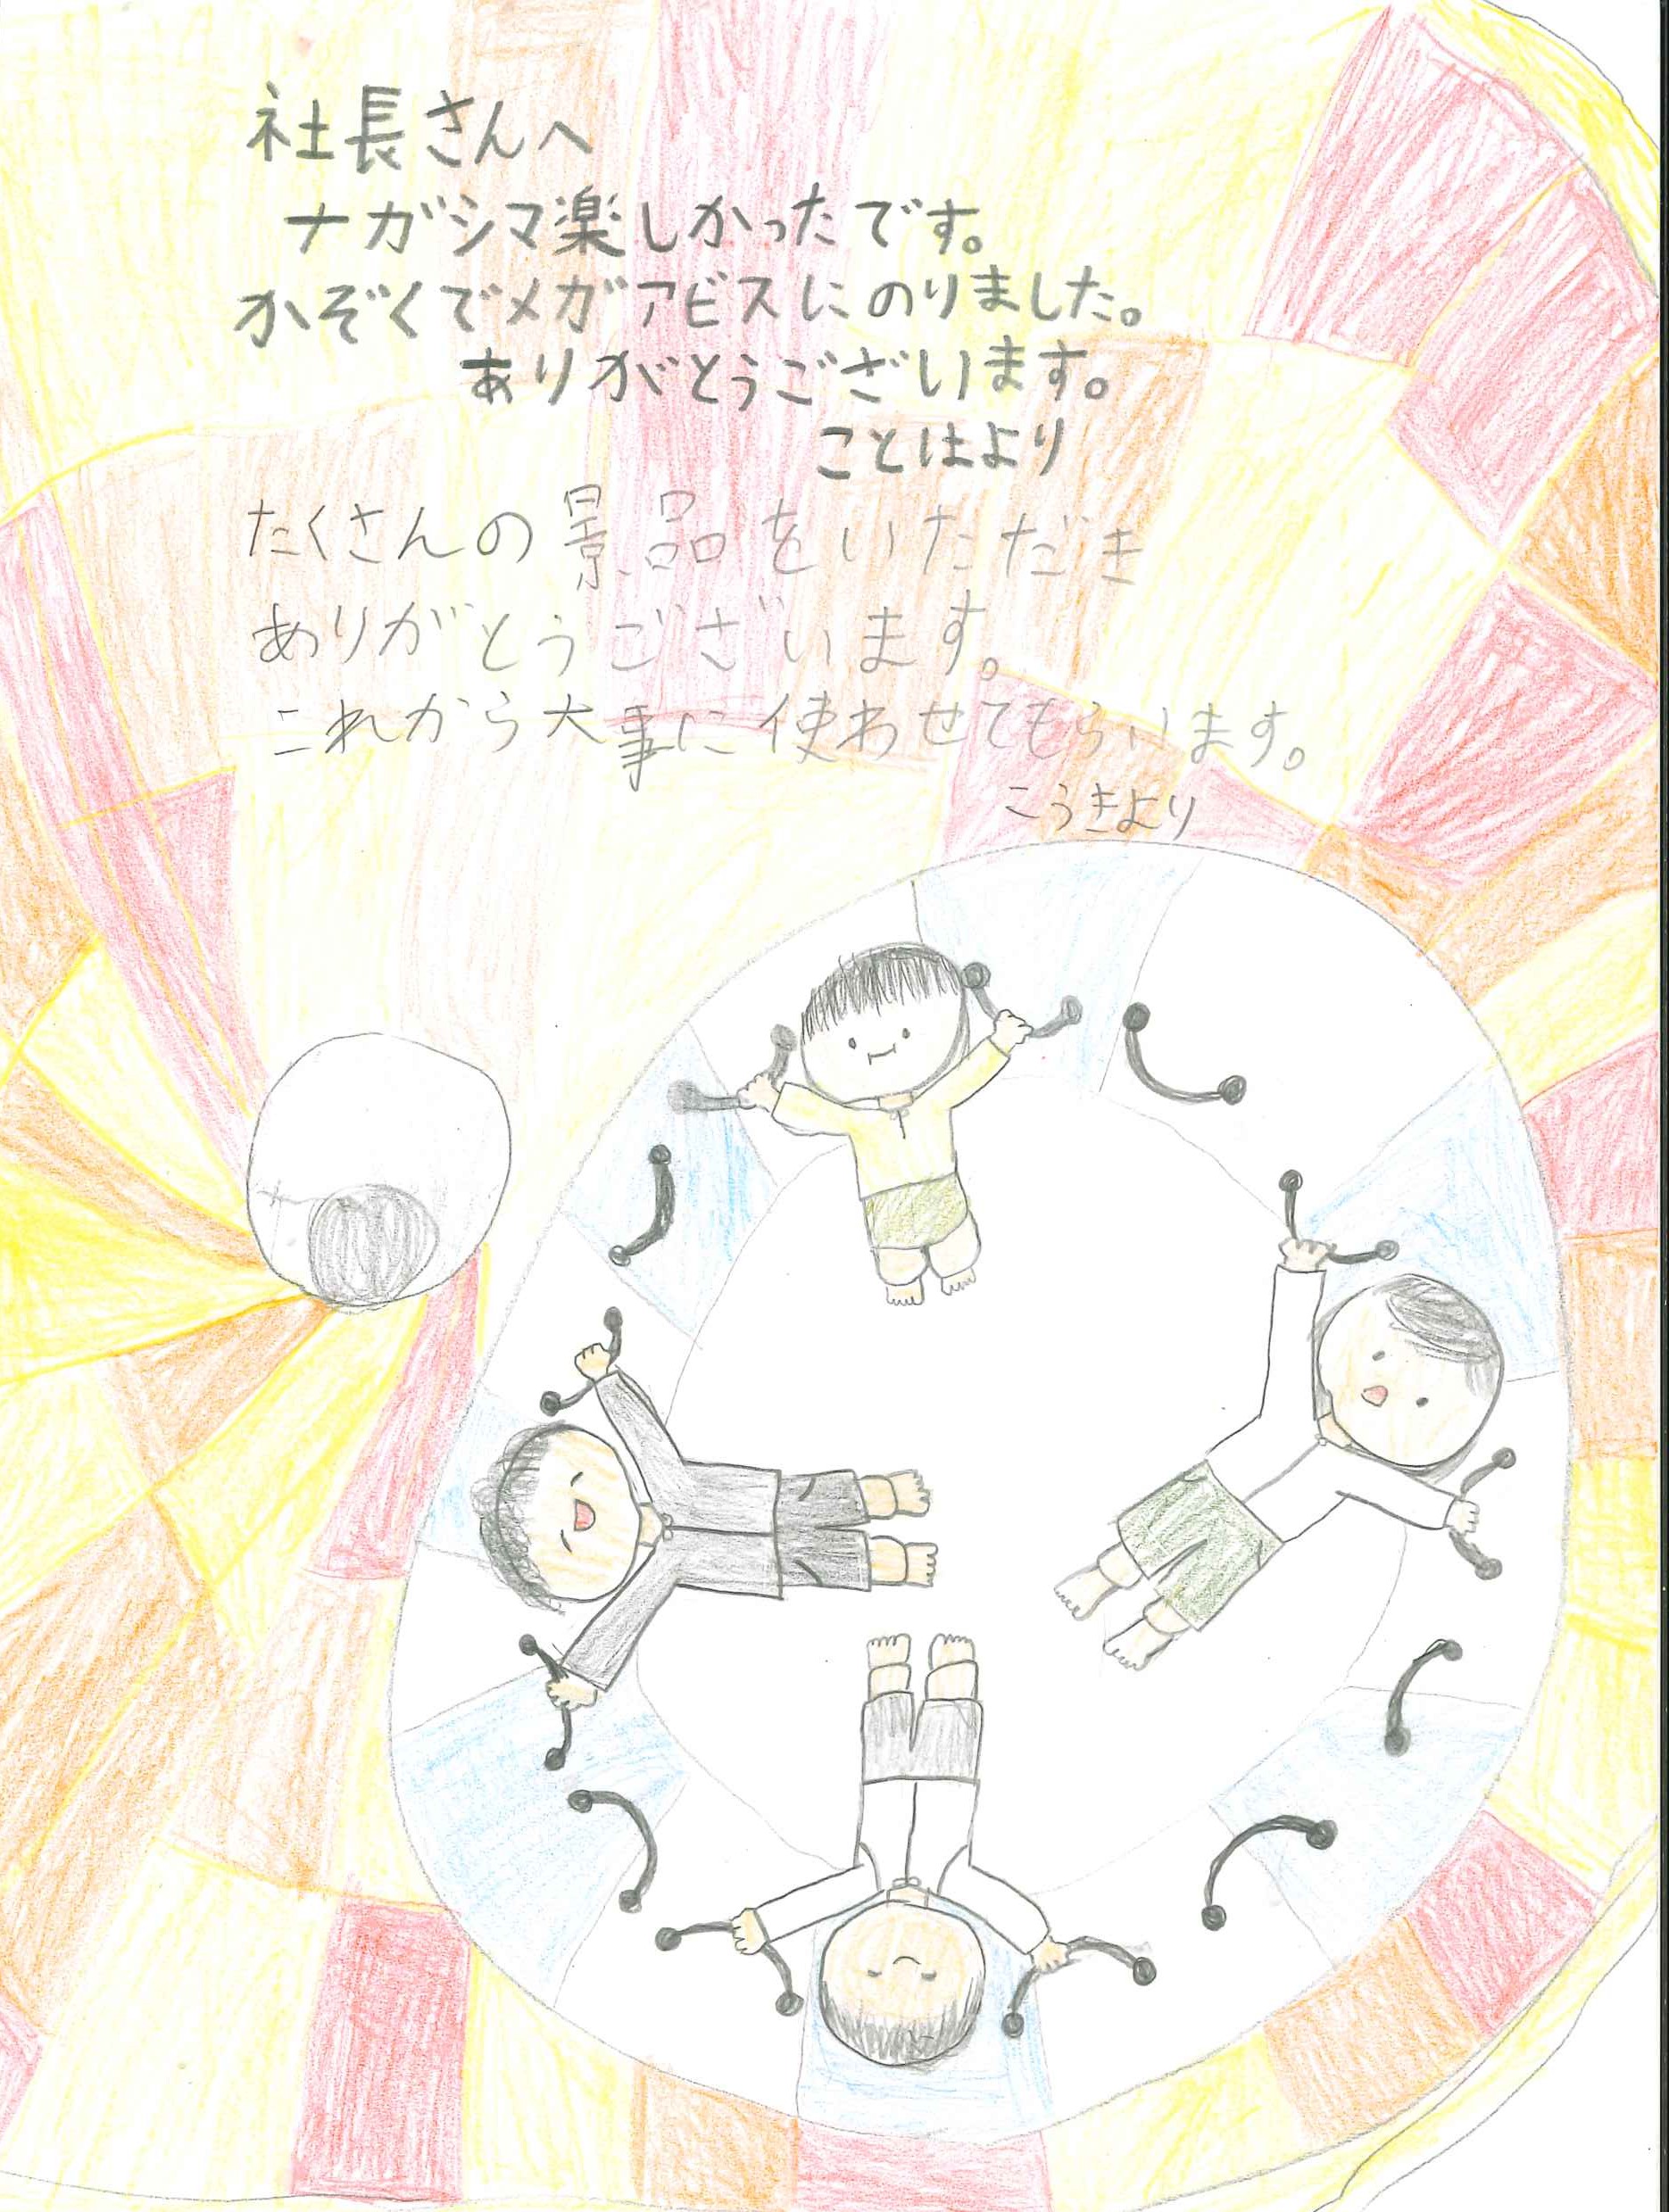 社長さんへ
ナガシマ楽しかったです。
かぞくでメガアビスにのりました。
ありがとうございます。
ことはより
たくさんの景品をいただき
ありがとうございます。
これから大事に使わせてもらいます。
こうきより